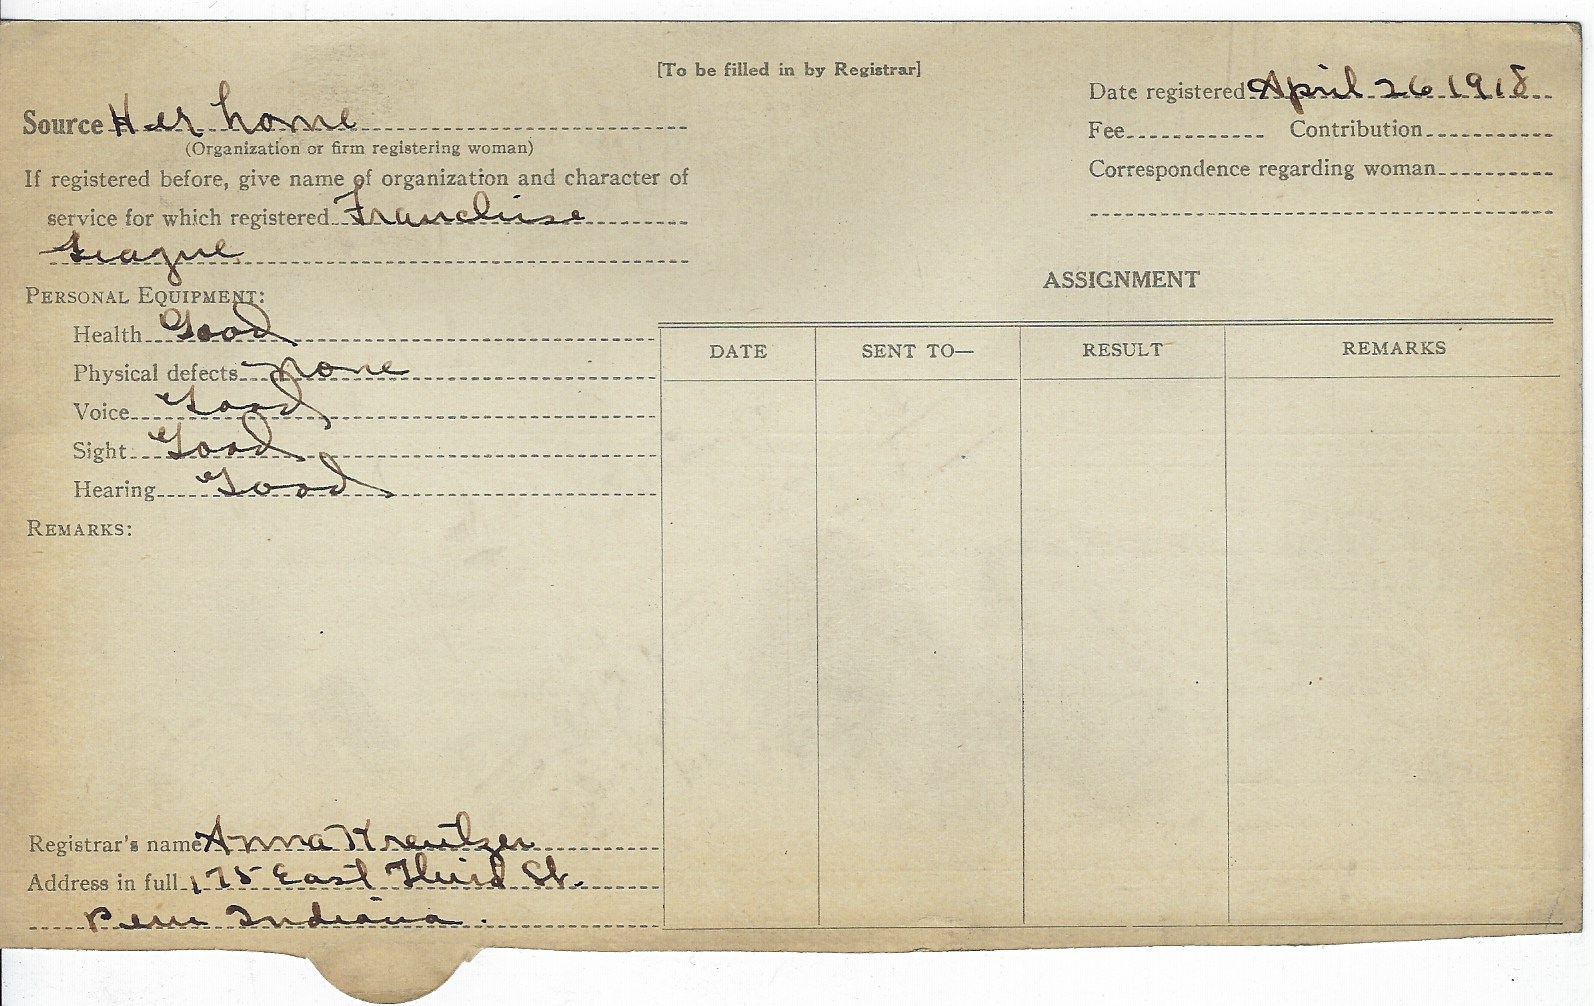 [To be filled in by Registrar]
Source Her home
(Organization or firm registering woman)
If registered before, give name of organization and character of
service for which registered Franchise
League
PERSONAL EQUIPMENT:
Health Good
Physical defects none
Voice Good
Sight Good
Hearing Good
REMARKS:
Registrar's name Anna Kreutzer
Address in full 175 East Third St.
Peru Indiana.
Date registered April 26 1918
Fee Contribution
Correspondence regarding woman
ASSIGNMENT
DATE SENT TO— RESULT REMARKS